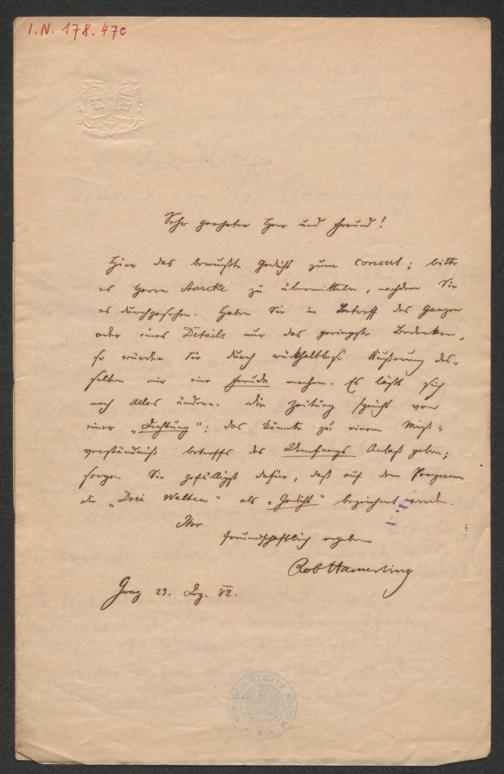 I.N. 178.470
Sehr geehrter Herr und Freund!
Hier das Gedicht zum Concert; bitte
es Herrn zu übermitteln, nachdem Sie
es durchgesehen. Haben Sie in Betreff des Ganzen
oder eines Details nur das geringste Bedenken,
so würden Sie durch rückhaltlose Äußerung des-
selben mir eine Freude machen. Es läßt sich
noch Alles ändern. Die Zeitung spricht von
einer „Dichtung"; das könnte zu einem Miß-
verständniß betreffs des Umfangs Anlaß geben;
sorgen Sie gefälligst dafür, daß auf dem Programm
die „Drei Welten" als „Gedicht" bezeichnet werden.
Ihr
freundschaftlich ergeben
Rob Hamerling
Graz 23. Dz. 82.